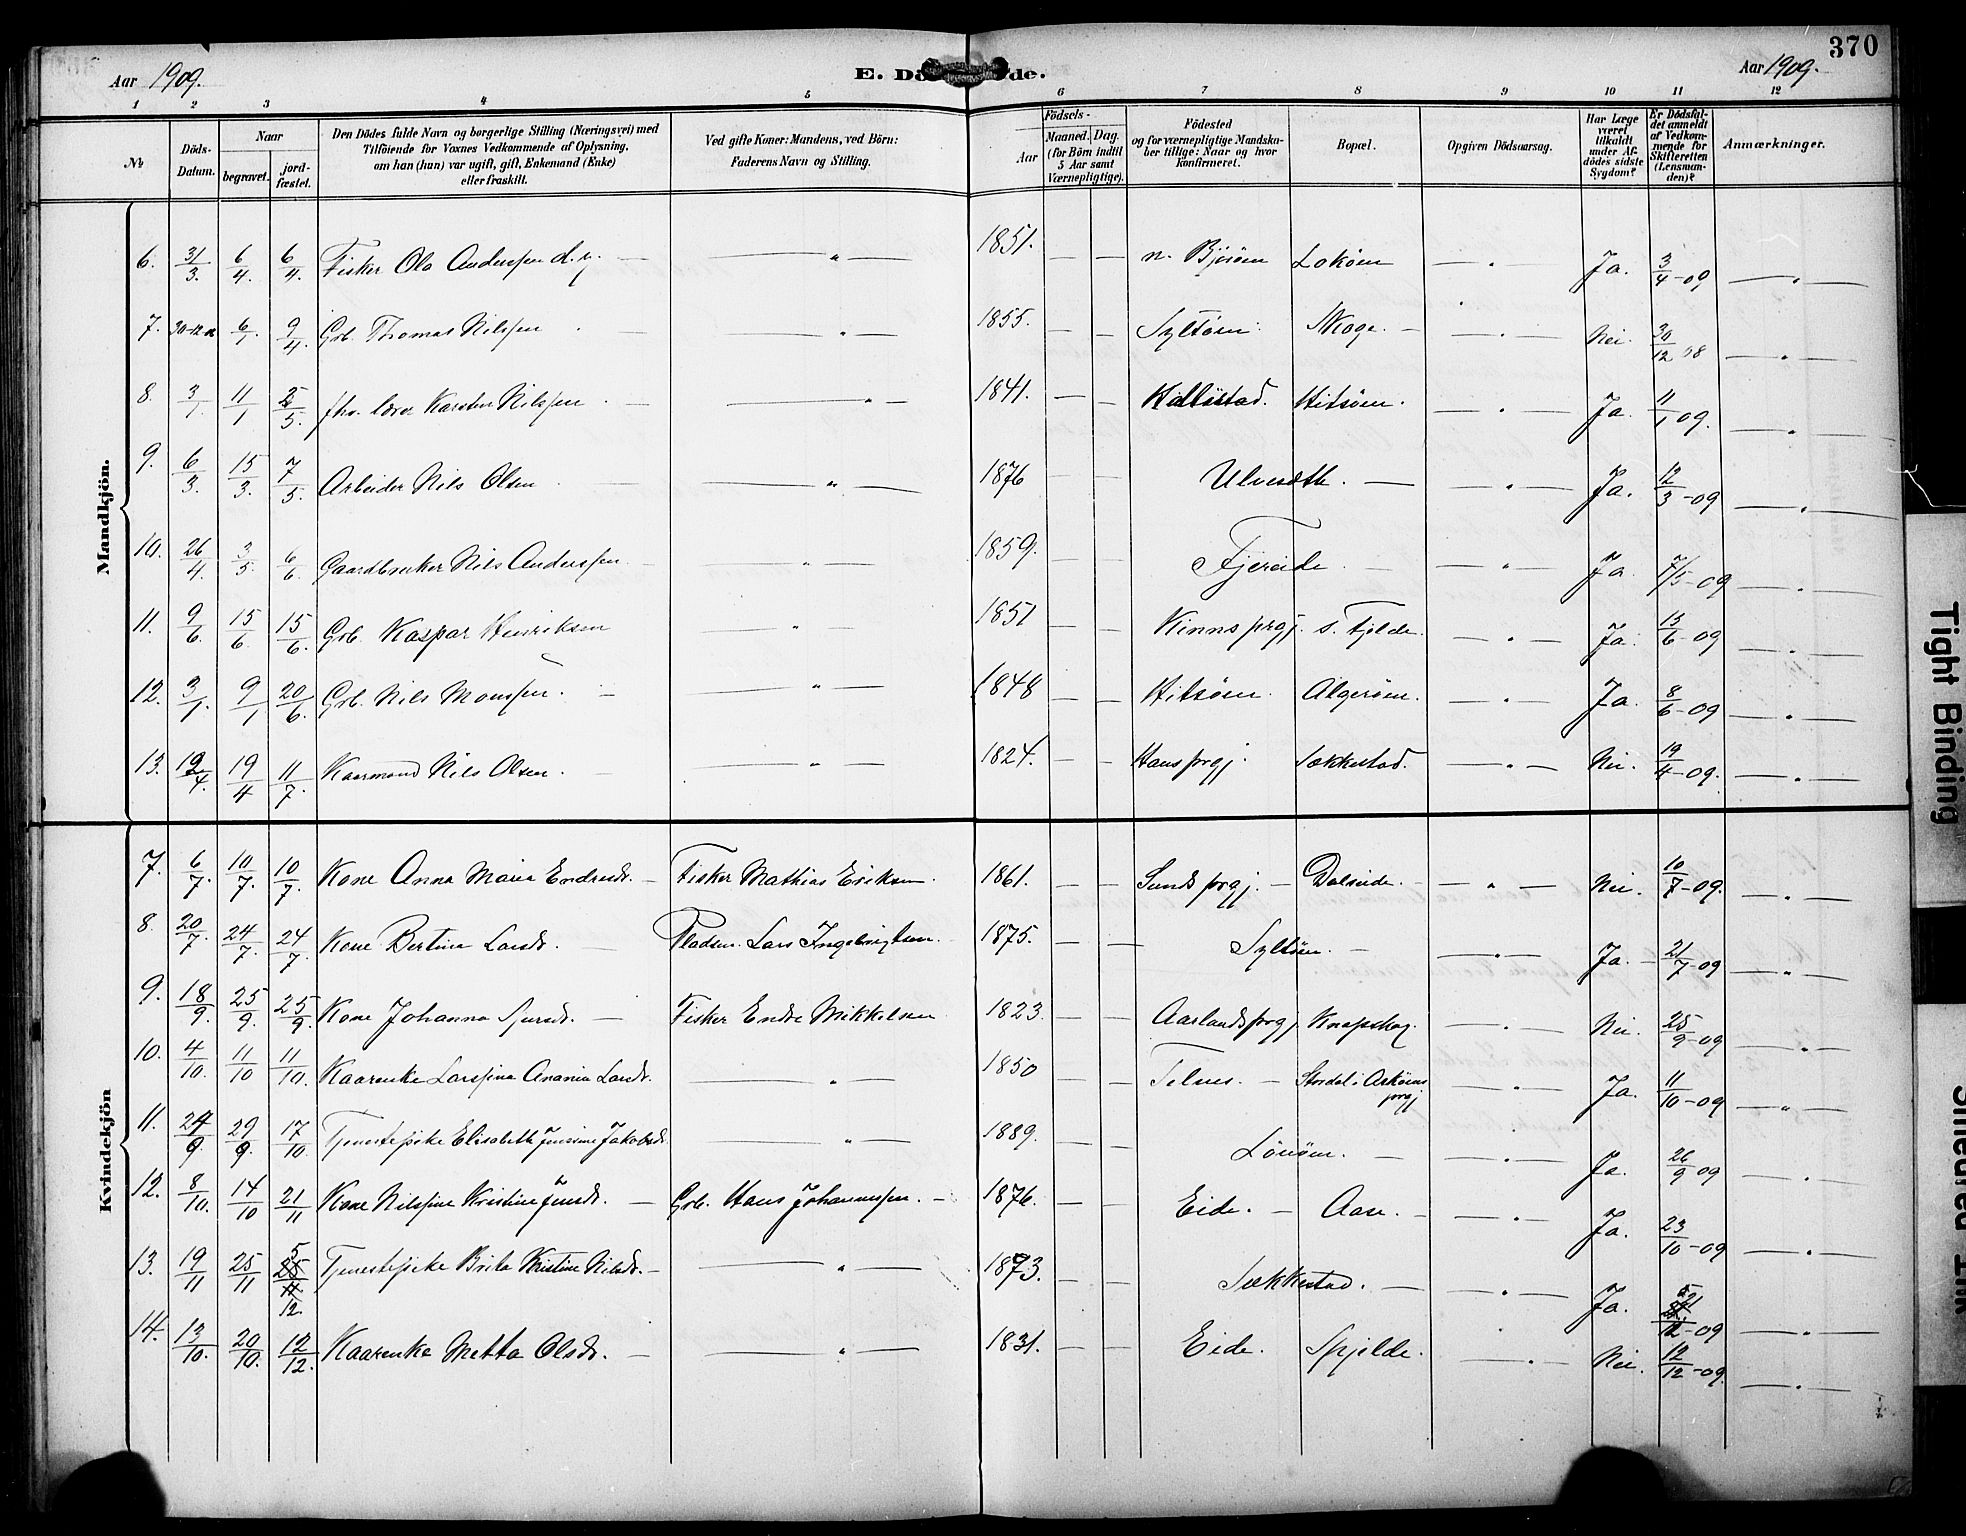 370
Aar 1909.
E. Dö de.
Aar 1909.
1 2 3 4 5 6 7 8 9 10 11 12
№
Döds-Datum.
Naar
begravet.
jordfæstet.
Den Dödes fulde Navn og borgerlige Stilling (Næringsvei) med
Tilföiende for Voxnes Vedkommende af Oplysning,
om han (hun) var ugift, gift, Enkemand (Enke)
eller fraskilt.
Ved gifte Koner: Mandens, ved Börn:
Faderens Navn og Stilling.
Födsels-
Aar
Maaned. Dag.
(for Börn indtil
5 Aar samt
Værnepligtige).
Födested
og for værnepligtige Mandska-
ber tillige: Naar og hvor
konfirmeret.
Bopæl.
Opgiven Dödsaarsag.
Har Læge
været
tilkaldt
under Af-
dödes sidste
Sygdom?
Er Dödsfal-
det anmeldt
af Vedkom-
mende for
Skifteretten
(Lensman-
den)?
Anmærkninger.
Mandkjön.
6. 31/3. 6/4. 6/4. Fisker Ola Anderssen d. y. — " — 1851. — — n. Bjoröen Loköen — " — Ja. 3/4-09 — " —
7. 30-12-08 6/1. 9/4. Grb. Thomas Nilssen — " — 1855. — — Syltöen. Skoge. — " — Nei. 30/12 08 — " —
8. 3/1. 11/1 5/5. fhv. lærer Karsten Nilssen — " — 1841. — — Kallestad. Hitsöen. — " — Ja. 11/1 09. — " —
9. 6/3. 15/3. 7/5. Arbeider Nils Olsen — " — 1876 — — Ulvesæth. — " — Ja. 12/3-09 — " —
10. 26/4. 3/5. 6/6. Gaardbruker Nils Anderssen — " — 1859. — — Fjæreide — " — Ja. 7/5-09 — " —
11. 9/6. 15/6. 15/6. Grb. Kaspar Henriksen — " — 1851 — — Kinns prgj. s. Fjelde. — " — Ja. 15/6-09 — " —
12. 3/1. 9/1 20/6. Grb. Nils Monssen. — " — 1848 — — Hitsöen. Algeröen. — " — Ja. 8/6-09 — " —
13. 12/4. 19/4 11/7. Kaarmand Nils Olsen. — " — 1824. — — Haus prgj. Sækkestad. — " — Nei. 19/4-09. — " —
Kvindekjön
7. 6/7. 10/7. 10/7. Kone Anna Maria Endresdr. — Fisker Mathias Eriksen. 1861. — — Sunds prgj. — Dalseide. — " — Nei. 10/7-09. — " —
8. 20/7. 24/7. 24/7. Kone Bertine Larsdr. — Pladsm. Lars Ingebrigtsen. 1875. — — Syltöen. — " — Ja. 21/7-09 — " —
9. 18/9. 25/9. 25/9. Kone Johanna Sjursdr. — Fisker Endre Mikkelsen 1823. — — Aarlands prgj. Knapskog. — " — Nei. 25/9-09 — " —
10. 4/10. 11/10 11/10. Kaarenke Larssine Anania Larsdr. — " — 1850 — — Telnes. — Stordal i Asköens prgj — " — Ja. 11/10-09 — " —
11. 24/9. 29/9. 17/10. Tjenestepike Elisabeth Jensine Jakobsdr. — " — 1889. — — Lönöen. — " — Ja. 26/9 09 — " —
12. 8/10. 14/10 21/11 Kone Nilssine Kristine Jensdr. — Grb. Hans Johannessen. — 1876. — — Eide. — Aase. — " — Ja. 23/10-09 — " —
13. 19/11 25/11 5/12. Tjenestepike Brita Kristine Nilsdr. — " — 1873. — — Sækkestad. — " — Ja. /12-09 — " —
14. 13/10. 20/10. 12/12. Kaarenke Metta Olsdr. — " — 1831. — — Eide. Spjelde. — " — Nei. 12/12-09. — " —
Tight Binding
Smeared Ink